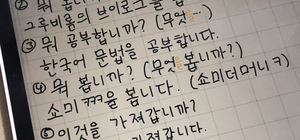 그루비룸의 브이로그를
③ 뭐 공부합니까? (무엇을…)
한국어 문법을 공부합니다.
④ 뭐 봅니까? (무엇을 봅니까?)
쇼미ㅋㅋㅋ을 봅니다. (쇼미더머니ㅋ)
⑤ 이것을 가져갑니까?
가져갑니다.